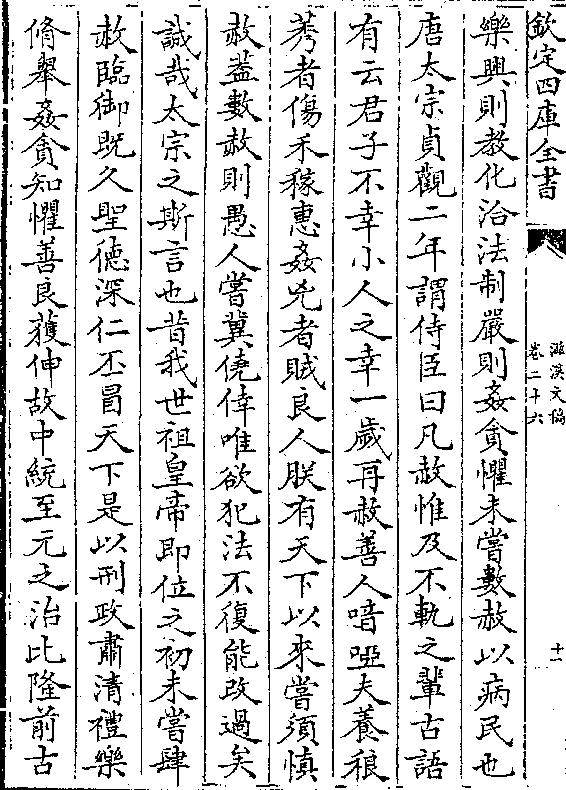 欽定四庫全書
滋溪文稿
卷二十六
十一
樂興則教化洽法制嚴則姦貪懼未嘗數赦以病民也
唐太宗貞觀二年謂侍臣曰凡赦惟及不軌之輩古語
有云君子不幸小人之幸一歲再赦善人喑啞夫養稂
莠者傷禾稼惠姦兇者賊良人朕有天下以來嘗須慎
赦蓋數赦則愚人嘗冀僥倖唯欲犯法不復能改過矣
誠哉太宗之斯言也昔我世祖皇帝即位之初未嘗肆
赦臨御既久聖德深仁丕冒天下是以刑政肅清禮樂
脩舉姦貪知懼善良獲伸故中統至元之治比隆前古